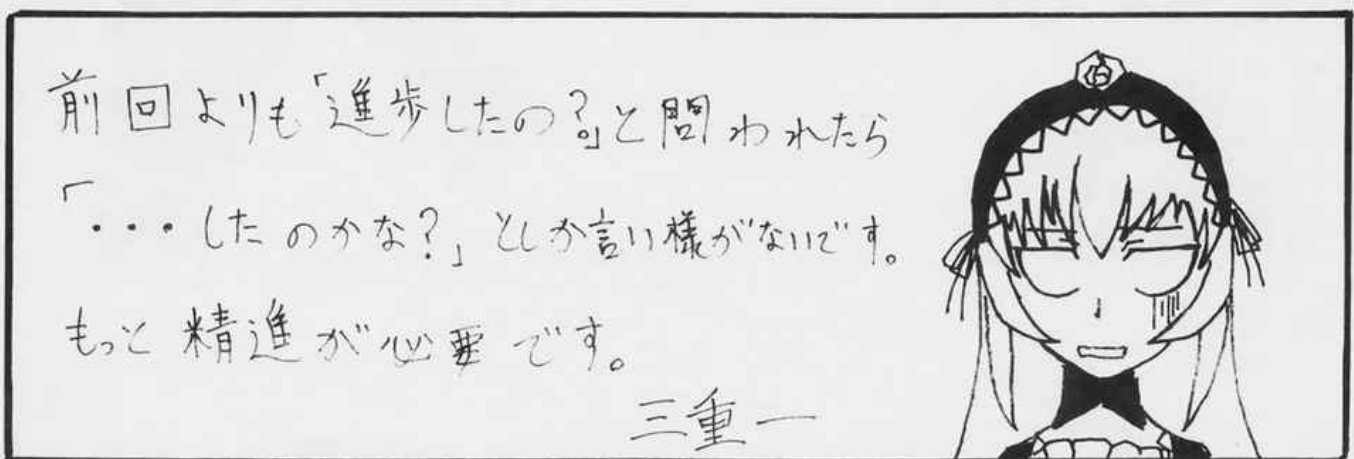 前回よりも「進歩したの?」と問われたら
「・・・したのかな?」としか言い様がないです。
もっと精進が必要です。
三重一